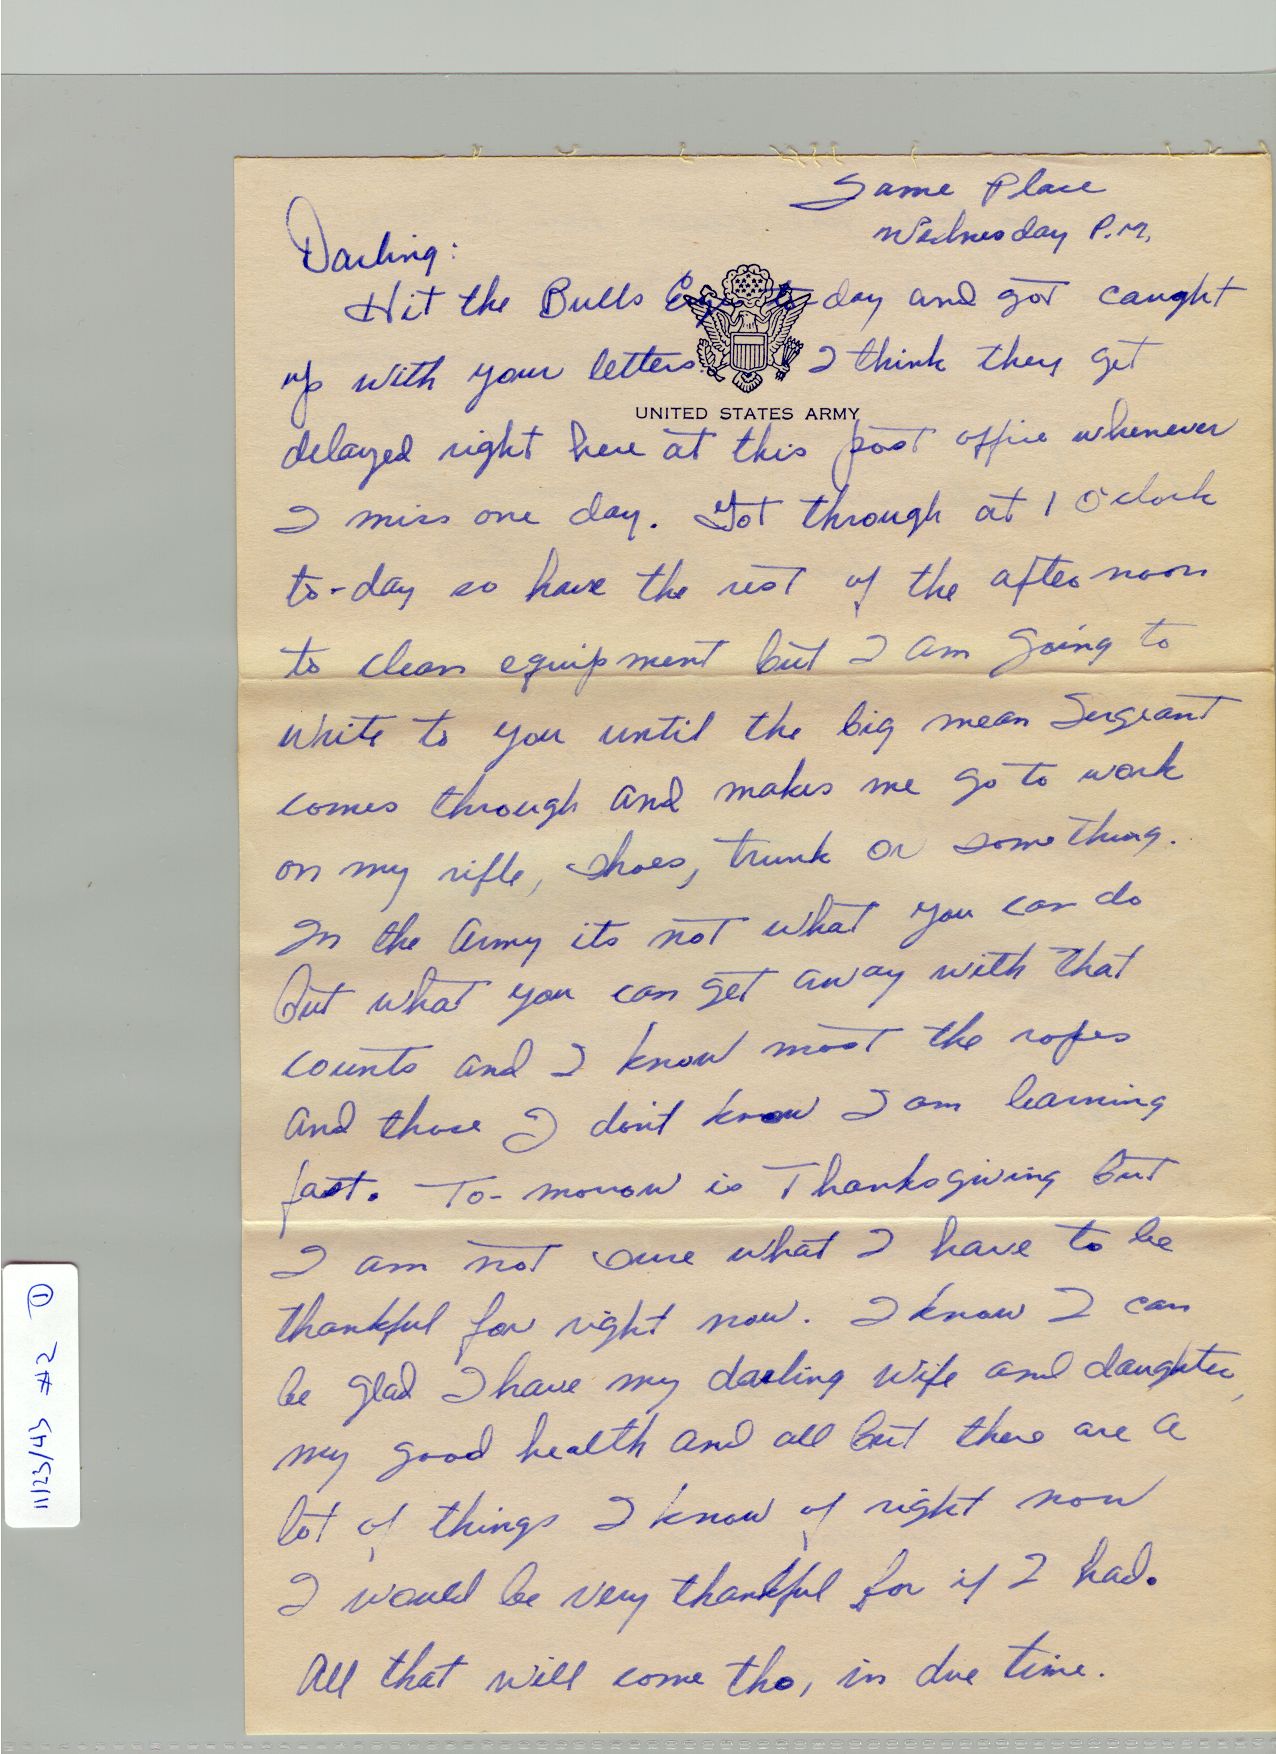 Same Place
Wednesday P.M.
Darling:
Hit the Bulls Eye to-day and got caught
up with your letters. I think they get
UNITED STATES ARMY
delayed right here at this post office whenever
I miss one day. Got through at 1 O'clock
to-day so have the rest of the afternoon
to clean equipment but I am going to
write to you until the big mean Sergeant
comes through and makes me go to work
on my rifle, shoes, trunk or something.
In the Army its not what you can do
but what you can get away with that
counts and I know most the ropes
and those I don't know I am learning
fast. To-morrow is Thanksgiving but
I am not sure what I have to be
thankful for right now. I know I can
be glad I have my darling wife and daughter,
my good health and all but there are a
lot of things I know of right now
I would be very thankful for if I had.
All that will come tho, in due time.
11/23/43 #2 ①